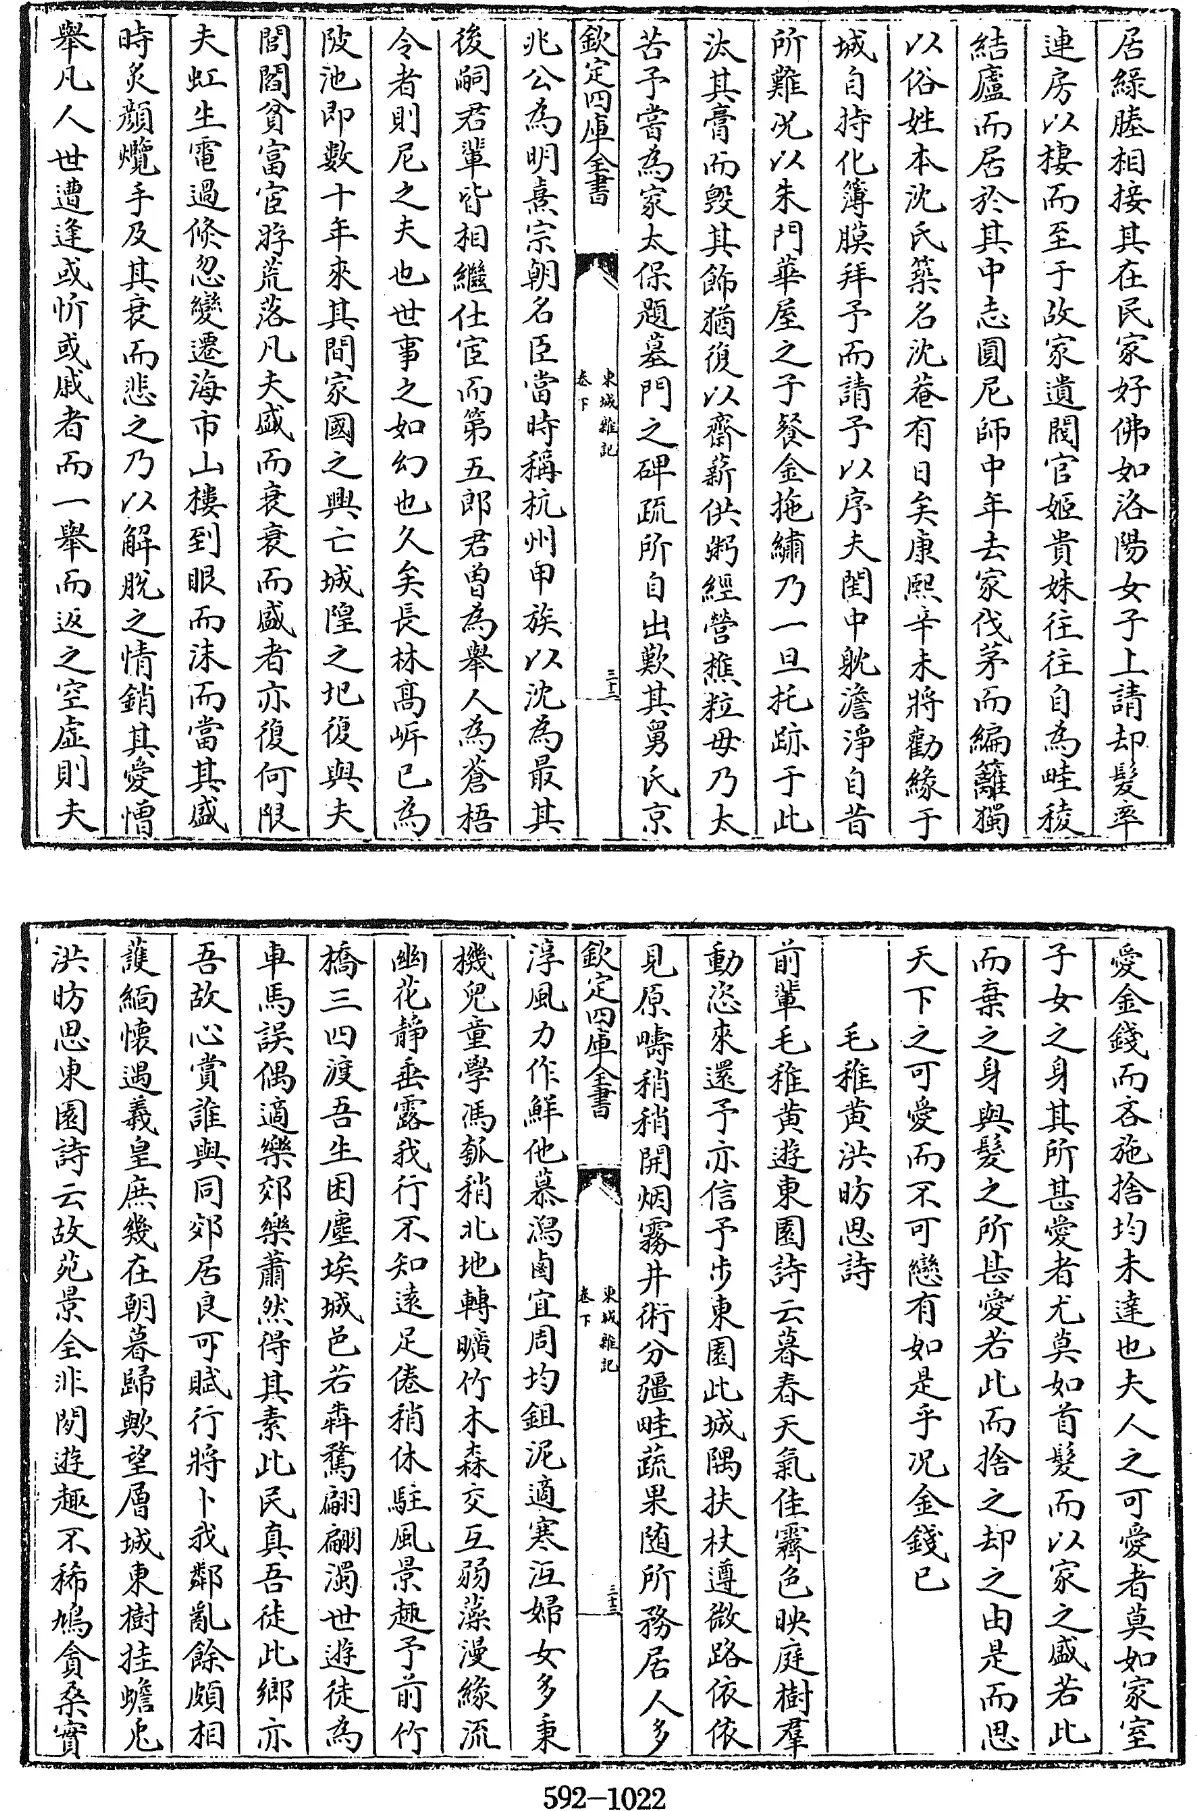 居緑塍相接其在民家好佛如洛陽女子上請却髮率
連房以棲而至于故家遺閥官姬貴妹往往自為畦稜
結廬而居於其中志圓尼師中年去家伐茅而編籬獨
以俗姓本沈氏築名沈菴有日矣康熙辛未將勸緣于
城自持化簿膜拜予而請予以序夫閨中躭澹淨自昔
所難况以朱門華屋之子餐金拖繡乃一旦托跡于此
汰其膏而毁其飾猶復以齋薪供粥經營樵粒毋乃太
苦予嘗為家太保題墓門之碑疏所自出歎其舅氏京
欽定四庫全書
東城雜記
卷下
三十二
兆公為明熹宗朝名臣當時稱杭州甲族以沈為最其
後嗣君輩皆相繼仕宦而第五郎君曾為舉人為蒼梧
令者則尼之夫也世事之如幻也久矣長林高㟁已為
陂池即數十年來其間家國之興亡城隍之圮復與夫
閭閻貧富宦脟荒落凡夫盛而衰衰而盛者亦復何限
夫虹生電過倐忽變遷海市山樓到眼而沬而當其盛
時炙顔爦手及其衰而悲之乃以解脱之情銷其愛憎
舉凡人世遭逢或忻或戚者而一舉而返之空虛則夫
愛金錢而吝施捨均未達也夫人之可愛者莫如家室
子女之身其所甚愛者尤莫如首髮而以家之盛若此
而棄之身與髮之所甚愛若此而捨之却之由是而思
天下之可愛而不可戀有如是乎况金錢已
毛稚黄洪昉思詩
前輩毛稚黄遊東園詩云暮春天氣佳霽色映庭樹羣
動恣來還予亦信予步東園此城隅扶杖遵微路依依
見原疇稍稍開烟霧井術分疆畦蔬果随所務居人多
欽定四庫全書
東城雜記
卷下
三十三
淳風力作鮮他慕潟鹵宜周均鉏泥適寒沍婦女多秉
機兒童學馮瓠稍北地轉曠竹木森交互弱藻漫緣流
幽花靜垂露我行不知遠足倦稍休駐風景趣予前竹
橋三四渡吾生困塵埃城邑若犇騖翩翩濁世遊徒為
車馬誤偶適樂郊樂蕭然得其素此民真吾徒此鄉亦
吾故心賞誰與同郊居良可賦行將卜我鄰亂餘頗相
䕶緬懷遇義皇庶幾在朝暮歸歟望層城東樹挂蟾兎
洪昉思東園詩云故苑景全非閒遊趣不稀鳩貪桑實
592-1022